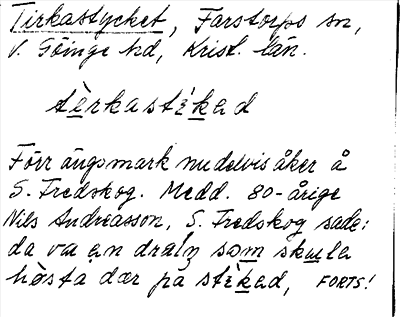 Tirkastycket, Farstorps sn,
V. Göinge hd, Krist. län.
tèrkastʹèkad
Förr ängsmark nu delvis åker å
S. Fredskog. Medd. 80-årige
Nils Andreasson, S. Fredskog sade:
da va en dräŋ som skule
hösta dær på stèkad, FORTS!